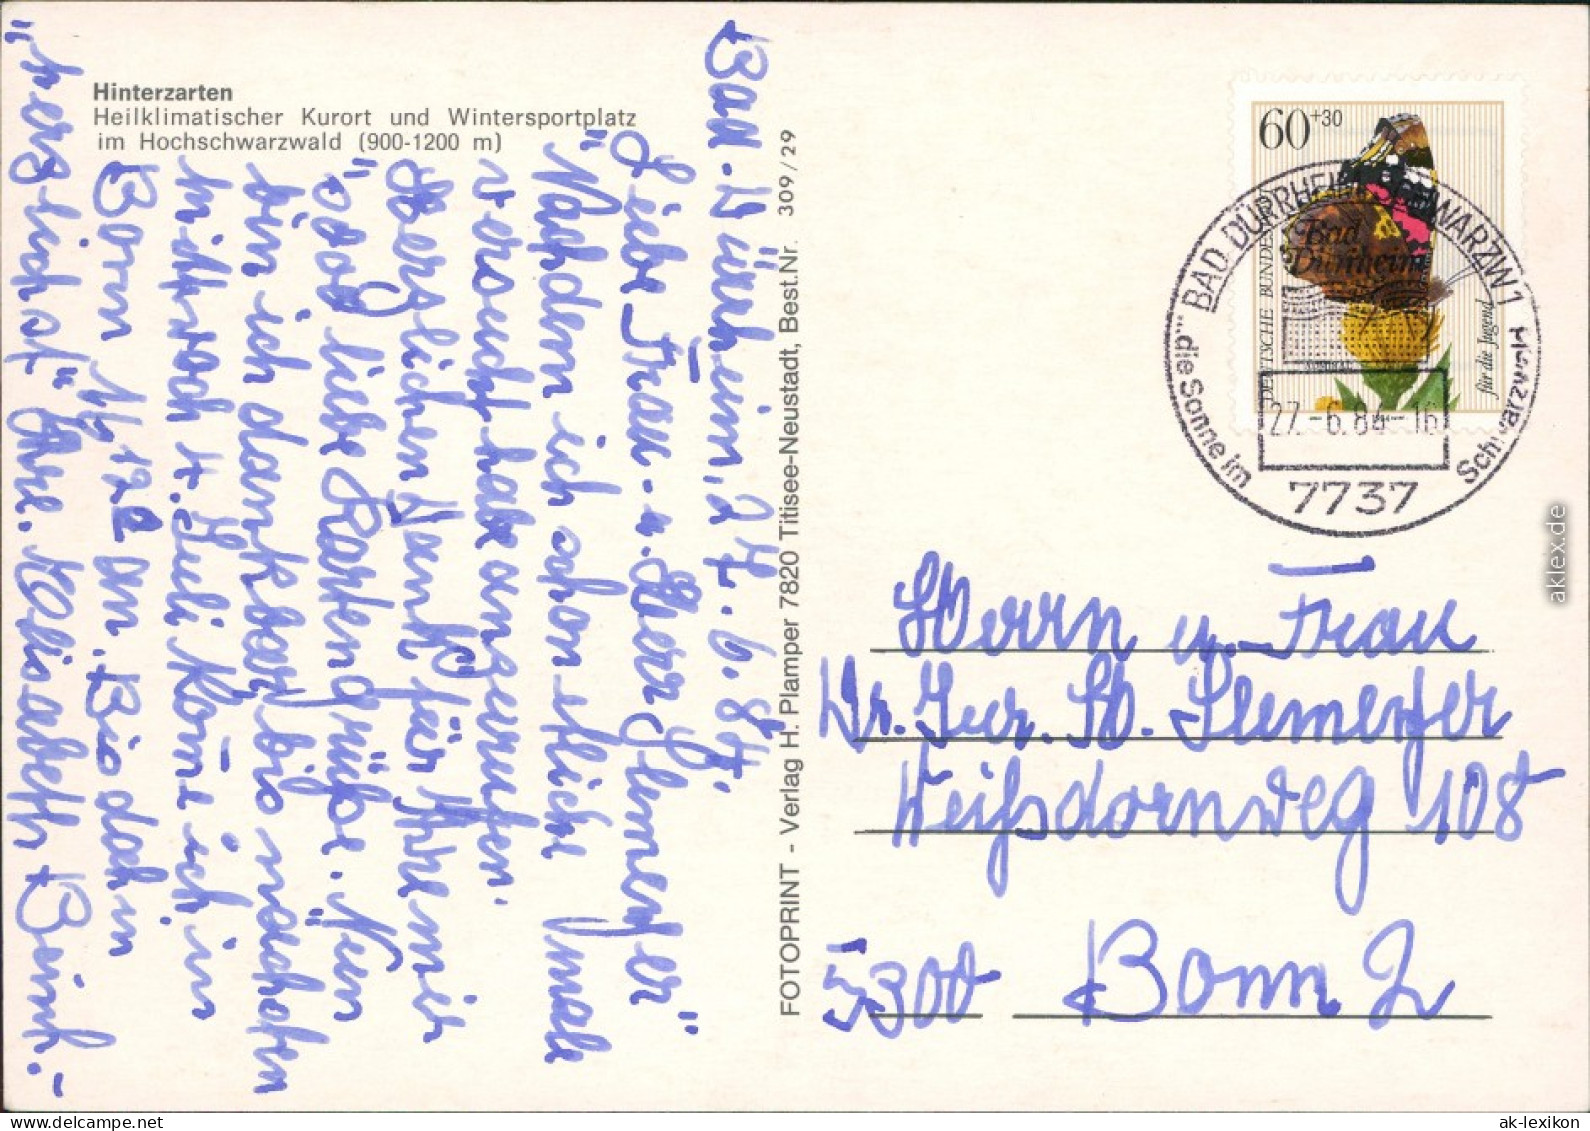 Hinterzarten
Heilklimatischer Kurort und Wintersportplatz
im Hochschwarzwald (900-1200 m)
Bad. Dürrheim, 27. 6. 84.
Liebe Frau. u. Herr Slemeyer"
"Nachdem ich schon etliche male
versucht habe anzurufen.
Herzlichen Dank für Ihre mir
"so lieb Kartengrüße. Nun
bin ich dankbar bis nächsten
mittwoch 4. Juli komme ich in
Bonn 1/2 12 an. Bis dahin
"herzlichst" Ihre. Elisabeth Beint.-
FOTOPRINT - Verlag H. Plamper 7820 Titisee-Neustadt, Best.Nr. 309/29
60+30
DEUTSCHE BUNDES
für die Jugend
BAD DÜRRHEIM SCHWARZW 1
Bad
Dürrheim
27.-6.84-16
7737
... die Sonne im Schwarzwald
Herrn u. Frau
Dr. Jur. Slemeyer
Weißdornweg 108
5300 Bonn 2
aklex.de
www.delcampe.net
ak-lexikon